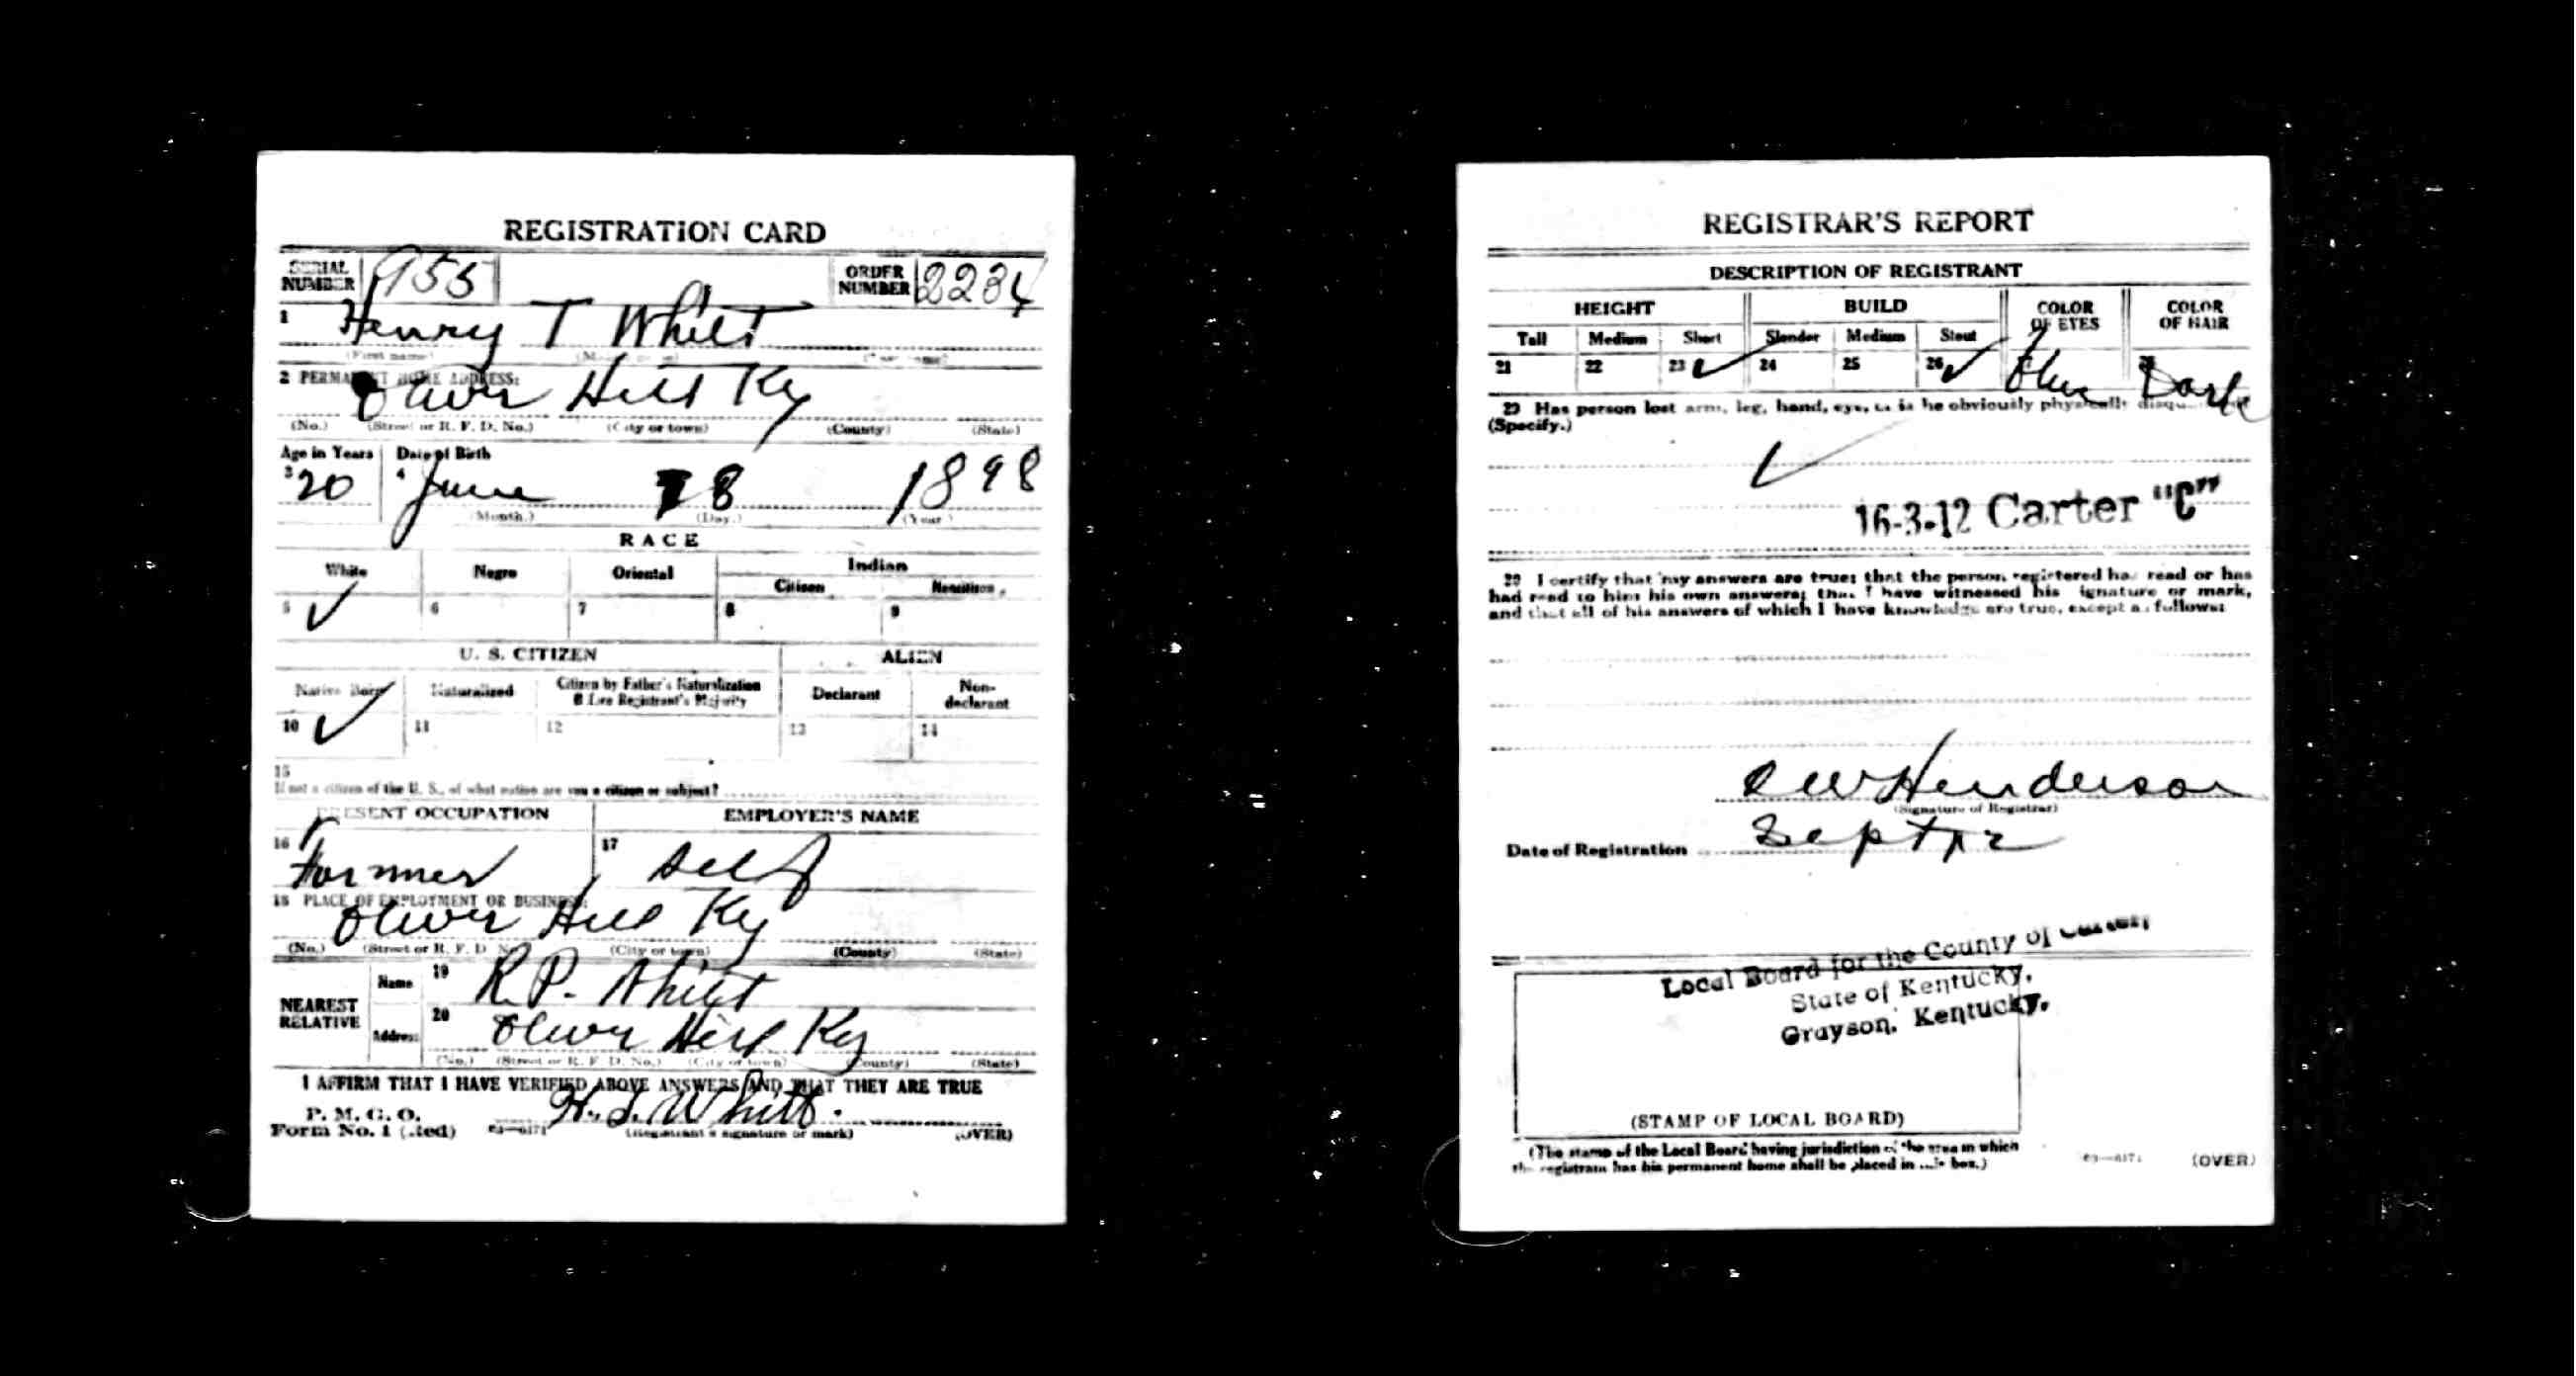 REGISTRATION CARD
SERIAL NUMBER 955 ORDER NUMBER 2234
1 Henry T Whitt
(First name)
2 PERMANENT HOME ADDRESS:
Oliver Hill Ky
(No.) (Street or R. F. D. No.) (City or town) (County) (State)
Age in Years Date of Birth
3 20 4 June 8 1898
(Month.) (Day.) (Year.)
RACE
White Negro Oriental Indian
Citizen Noncitizen
5 ✓ 6 7 8 9
U. S. CITIZEN ALIEN
Native Born Naturalized Citizen by Father's Naturalization Before Registrant's Majority Declarant Non-declarant
10 ✓ 11 12 13 14
15
If not a citizen of the U. S., of what nation are you a citizen or subject?
PRESENT OCCUPATION EMPLOYER'S NAME
16 Farmer 17 Self
18 PLACE OF EMPLOYMENT OR BUSINESS:
Oliver Hill Ky
(No.) (Street or R. F. D. No.) (City or town) (County) (State)
NEAREST RELATIVE
Name 19 R.P. Whitt
Address 20 Oliver Hill Ky
(No.) (Street or R. F. D. No.) (City or town) (County) (State)
I AFFIRM THAT I HAVE VERIFIED ABOVE ANSWERS AND THAT THEY ARE TRUE
P. M. G. O.
Form No. 1 (Red) 03—6171 H. T. Whitt.
(Registrant's signature or mark) (OVER)
REGISTRAR'S REPORT
DESCRIPTION OF REGISTRANT
HEIGHT BUILD COLOR OF EYES COLOR OF HAIR
Tall Medium Short Slender Medium Stout
21 22 23 ✓ 24 25 26 ✓ Blue Dark
29 Has person lost arm, leg, hand, eye, or is he obviously physically disqualified?
(Specify.)
✓
16-3-12 Carter "C"
30 I certify that my answers are true; that the person registered has read or has
had read to him his own answers; that I have witnessed his signature or mark,
and that all of his answers of which I have knowledge are true, except as follows:
Henderson
(Signature of Registrar)
Date of Registration Sept 12
Local Board for the County of Carter,
State of Kentucky,
Grayson, Kentucky.
(STAMP OF LOCAL BOARD)
(The stamp of the Local Board having jurisdiction of the area in which
the registrant has his permanent home shall be placed in this box.)
03—6171 (OVER)